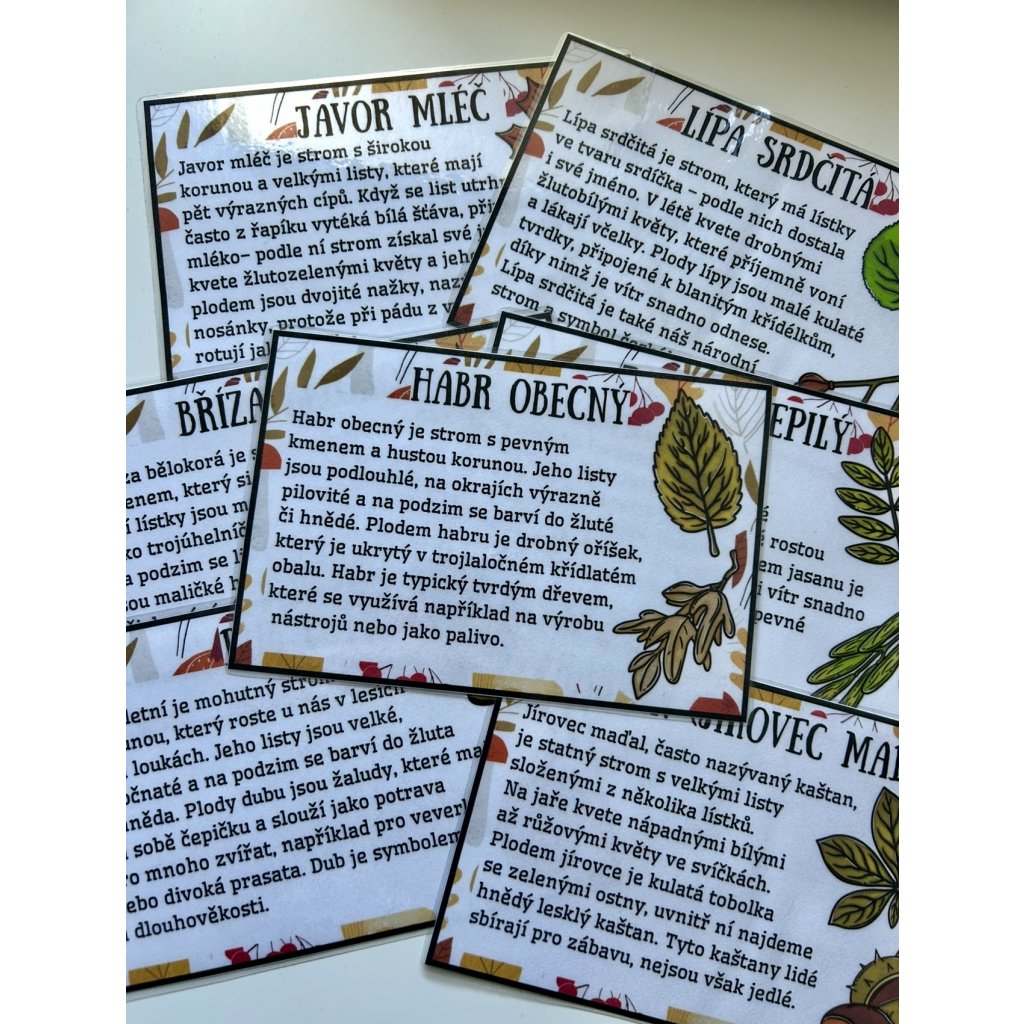 JAVOR MLÉČ
Javor mléč je strom s širokou
korunou a velkými listy, které mají
pět výrazných cípů. Když se list utrh
často z řapíku vytéká bílá šťáva, při
mléko– podle ní strom získal své j
kvete žlutozelenými květy a jeho
plodem jsou dvojité nažky, naz
nosánky, protože při pádu z v
rotují jak
LÍPA SRDČITÁ
Lípa srdčitá je strom, který má lístky
ve tvaru srdíčka – podle nich dostala
i své jméno. V létě kvete drobnými
žlutobílými květy, které příjemně voní
a lákají včelky. Plody lípy jsou malé kulaté
tvrdky, připojené k blanitým křídélkům,
díky nimž je vítr snadno odnese.
Lípa srdčitá je také náš národní
strom a symbol české
BŘÍZA
za bělokorá je s
menem, který si
í lístky jsou m
ko trojúhelníč
a podzim se li
sou maličké h
HABR OBECNÝ
Habr obecný je strom s pevným
kmenem a hustou korunou. Jeho listy
jsou podlouhlé, na okrajích výrazně
pilovité a na podzim se barví do žluté
či hnědé. Plodem habru je drobný oříšek,
který je ukrytý v trojlaločném křídlatém
obalu. Habr je typický tvrdým dřevem,
které se využívá například na výrobu
nástrojů nebo jako palivo.
EPILÝ
rostou
em jasanu je
i vítr snadno
pevné
letní je mohutný strom
unou, který roste u nás v lesích
loukách. Jeho listy jsou velké,
očnaté a na podzim se barví do žluta
hněda. Plody dubu jsou žaludy, které ma
sobě čepičku a slouží jako potrava
ro mnoho zvířat, například pro veverk
ebo divoká prasata. Dub je symbolem
dlouhověkosti.
JÍROVEC MAĎ
Jírovec maďal, často nazývaný kaštan,
je statný strom s velkými listy
složenými z několika lístků.
Na jaře kvete nápadnými bílými
až růžovými květy ve svíčkách.
Plodem jírovce je kulatá tobolka
se zelenými ostny, uvnitř ní najdeme
hnědý lesklý kaštan. Tyto kaštany lidé
sbírají pro zábavu, nejsou však jedlé.